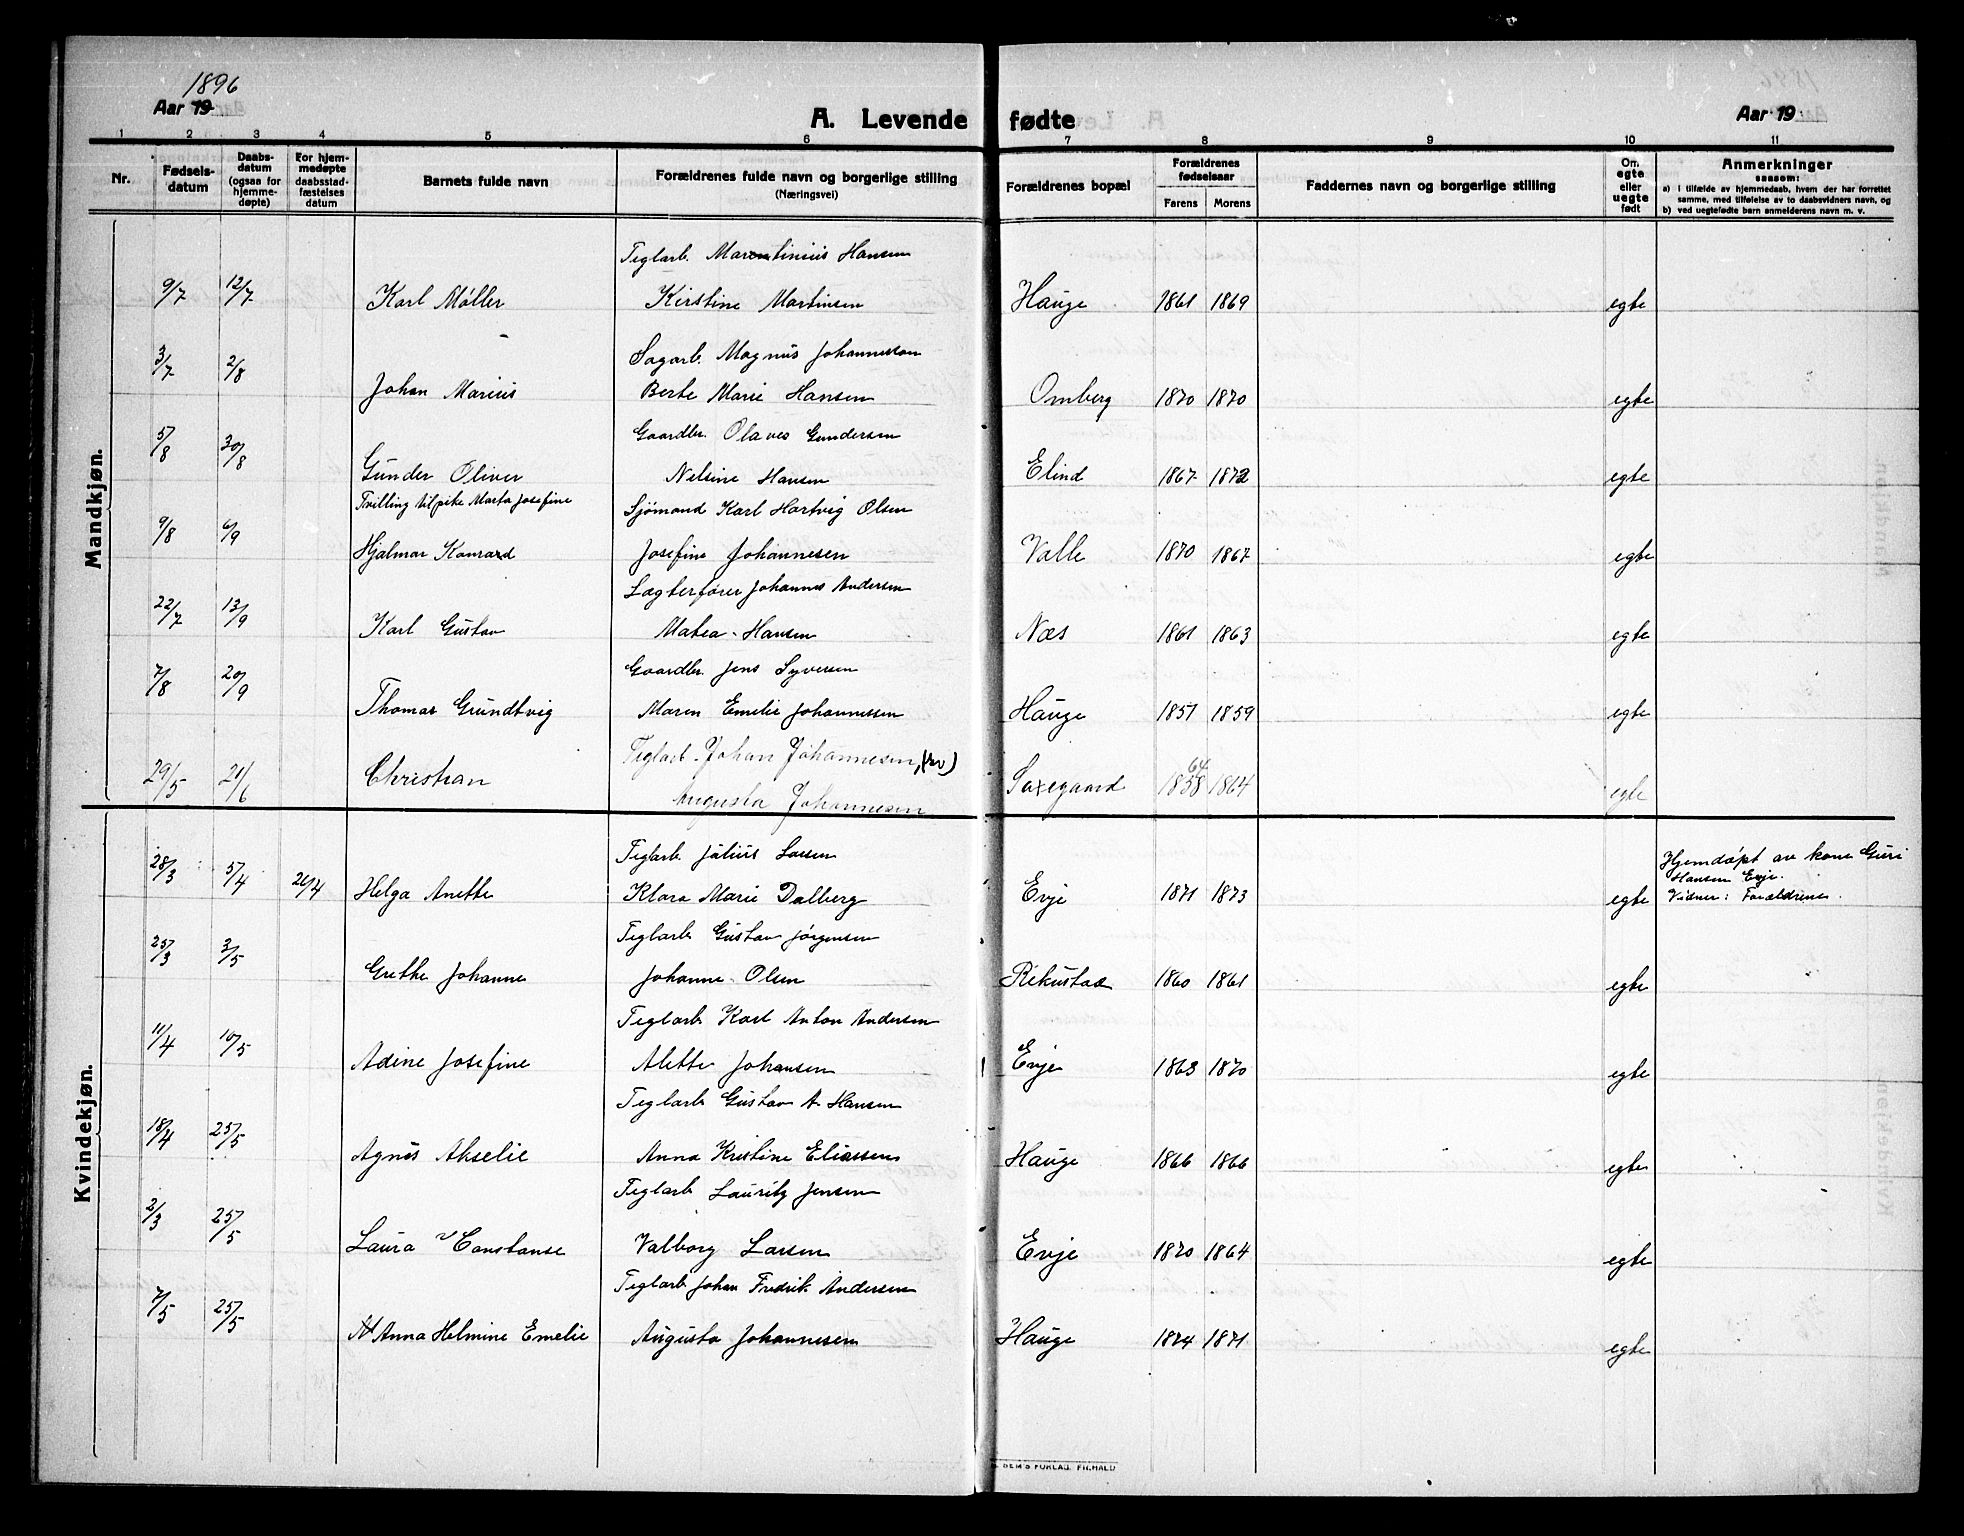 1896
Aar 19
A. Levende fødte
Aar 19
1 2 3 4 5 6 7 8 9 10 11
Nr.
Fødselsdatum
Daabsdatum (ogsaa for hjemmedøpte)
For hjemmedøpte daabsstadfæstelses datum
Barnets fulde navn
Forældrenes fulde navn og borgerlige stilling (Næringsvei)
Forældrenes bopæl
Forældrenes fødselsaar
Farens Morens
Faddernes navn og borgerlige stilling
Om egte eller uegte født
Anmerkninger
saasom:
a) i tilfælde av hjemmedaab, hvem der har forrettet samme, med tilføielse av to daabsvidners navn, og
b) ved uegtefødte børn anmelderens navn m. v.
Mandkjøn.
Teglarb. Martinius Hansen
9/7 12/7 Karl Møller Kirstine Martinsen Hauge 1861 1869 egte
Sagarb. Magnus Johannesson
3/7 2/8 Johan Marius Berte Marie Hansen Omberg 1870 1870 egte
Gaardbr. Olaves Gundersen
5/8 30/8 Gunder Oliver Nelsine Hansen Elind 1867 1872 egte
Tvilling til pike Marta Josefine Sjömand Karl Hartvig Olsen
9/8 6/9 Hjalmar Konrard Josefine Johannesen Valle 1870 1867 egte
Lægterfører Johannes Andersen
22/7 13/9 Karl Gustav Matea Hansen Næs 1861 1863 egte
Gaardbr. Jens Syversen
7/8 20/9 Thomas Grundtvig Maren Emelie Johannessen Hauge 1857 1859 egte
Teglarb. Johan Johannesen,
29/5 21/6 Christian Augusta Johannesen Saxegaard 1858 64 1864 egte
Kvindekjøn.
Teglarb. Julius Larsen
28/3 5/4 26/4 Helga Anette Klara Marie Dalberg Evje 1871 1873 egte
Hjemdøpt av kone Guri
Hansen Evje.
Vidner: Forældrene.
Teglarb. Gustav Jörgensen
25/3 3/5 Grethe Johanne Johanne Olsen Rekustad 1860 1861 egte
Teglarb. Karl Anton Andersen
11/4 10/5 Adine Josefine Alette Johansen Evje 1863 1870 egte
Teglarb. Gustav A. Hansen
18/4 25/5 Agnes Akselie Anna Kristine Eliassen Hauge 1866 1866 egte
Teglarb. Lauritz Jensen
2/3 25/5 Laura Constanse Valborg Larsen Evje 1870 1864 egte
Teglarb. Johan Fredrik Andersen
7/5 25/5 Anna Helmine Emelie Augusta Johannesen Hauge 1874 1871 egte
SEM'S FORLAG. FR.HALD